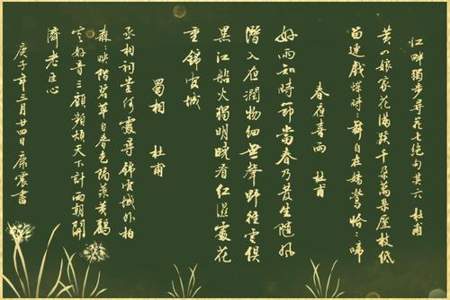 江畔獨步尋花七絕句其六 杜甫
黃四娘家花滿蹊千朵萬朵壓枝低
留連戲蝶時時舞自在嬌鶯恰恰啼
春夜喜雨 杜甫
好雨知時節當春乃發生隨風
潛入夜潤物細無聲野徑雲俱
黑江船火獨明曉看紅濕處花
重錦官城
蜀相 杜甫
丞相祠堂何處尋錦官城外柏
森森映階碧草自春色隔葉黃鸝
空好音三顧頻煩天下計兩朝開
濟老臣心
庚子年三月廿四日康震書